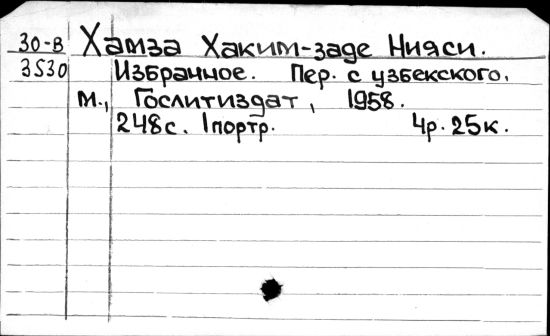 30-В Хамза Хаким-заде Нияси.
3530 Избранное. Пер. с узбекского.
М., Гослитиздат, 1958.
248с. 1портр. 4р. 25к.